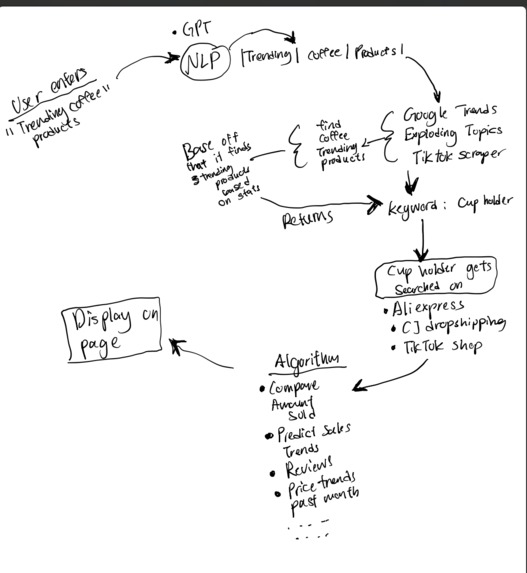 • GPT
NLP
|Trending| coffee | Products |
User enters
"Trending coffee"
products
Google Trends
Exploding Topics
TikTok scraper
find
coffee
Trending
products
Base off
that it finds
3 trending
products
based
on stats
Returns
keyword: Cup holder
Cup holder gets
searched on
• Aliexpress
• CJ dropshipping
• TikTok shop
Algorithm
• Compare
Amount
Sold
• Predict Sales
Trends
• Reviews
• Price trends
past month
Display on
page